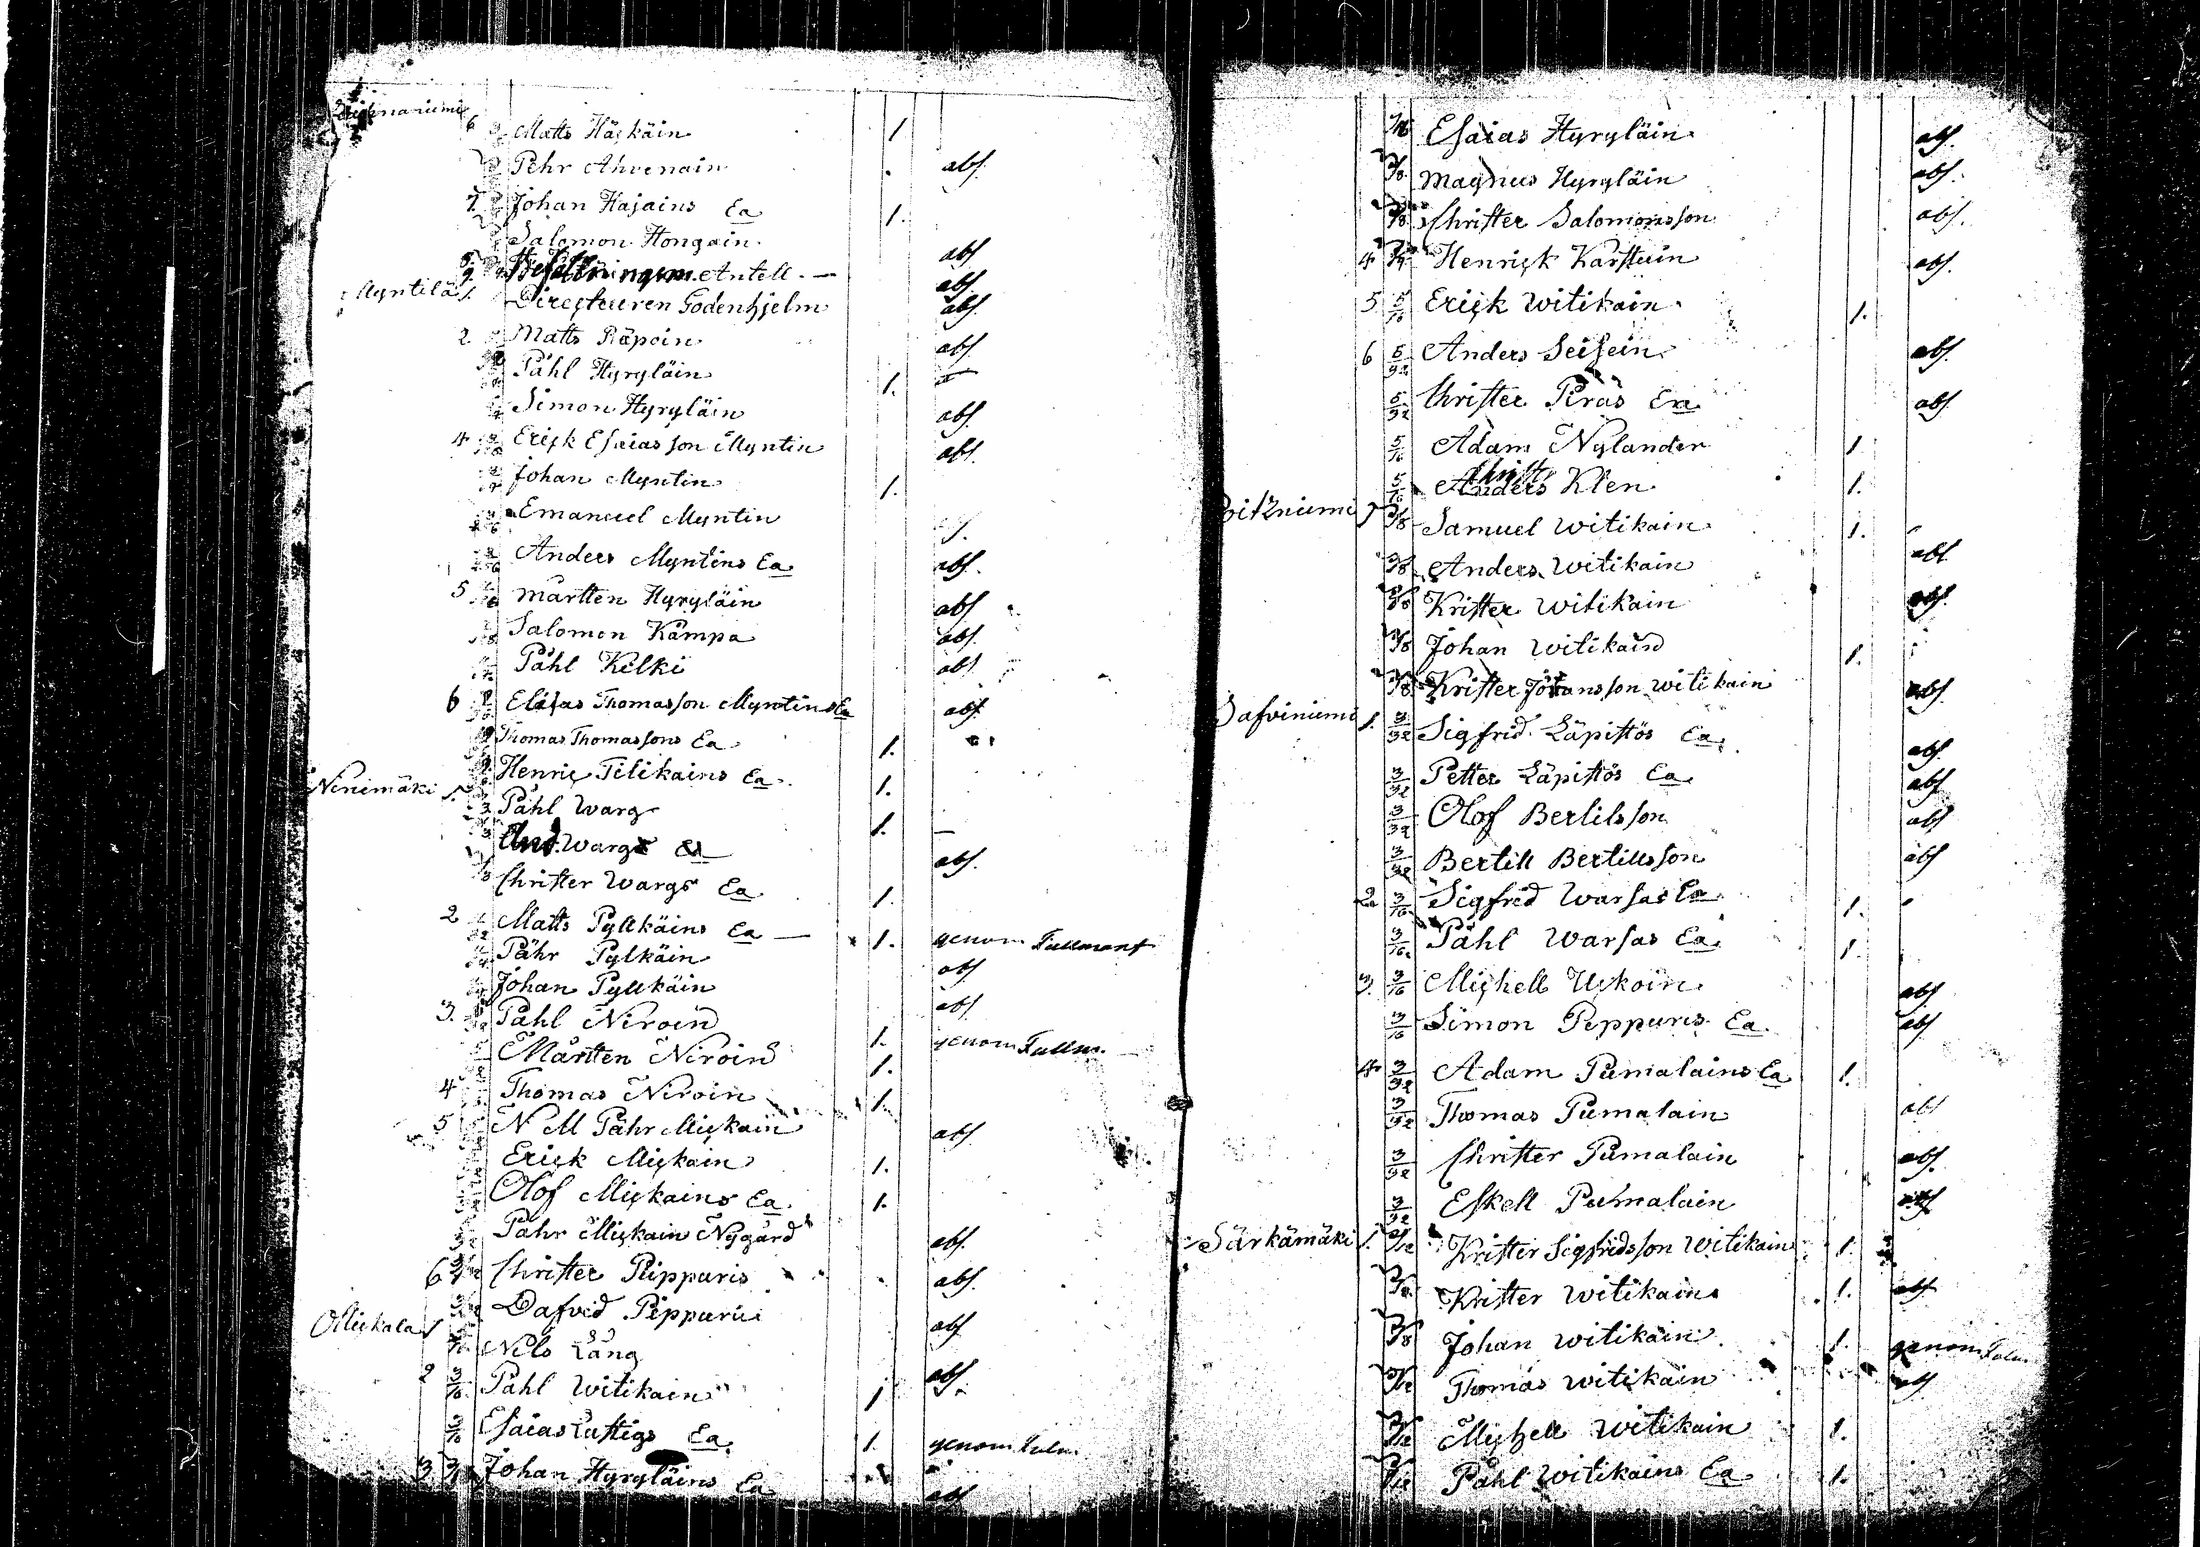 6 Matts Häckäin 1.
Pehr Ahvenain abs.
7. Johan Hajains Ea 1.
Salomon Hongain abs
Befallningsm. Antell. — abs.
Myntilä 1. Directeuren Godenhjelm abs.
2 Matts Räpoin abs.
Påhl Hyryläin 1.
Simon Hyryläin abs.
4 Erick Esaiasson Myntin abs.
Johan Myntin 1.
Emanuel Myntin 1.
Anders Myntins Ea abs.
5 Mårtten Hyryläin abs.
Salomon Kämpa abs.
Påhl Kelki abs
6 Thomasson Myntins Ea abs.
Thomas Thomassons Ea 1.
Henric Tilikains Ea 1.
Ninimäki 1. Påhl Warg 1. —
And. Wargs Ea abs.
Christer Wargs Ea 1.
2 Matts Pylkäins Ea — 1. genom Fullmant
Påhr Pylkäin abs
Johan Pylkäin abs
3. Påhl Niroin 1. genom Fullm.
Mårtten Niroin 1.
4 Thomas Niroin 1.
5 N M Påhr Mickain abs.
Erick Mickain 1.
Olof Mickains Ea 1.
Påhr Mickain Nygård abs.
6 Christer Pipparis abs.
Dafved Pippurii abs
Mickala 1 Nils Lång abs.
2 3/16 Påhl Witikain 1
3/16 Esaias Lustigs Ea 1. genom Fulm
3 Johan Hyryläins Ea abs
Esaias Hyryläin abs.
Magnus Hyryläin abs.
Christer Salomonsson abs.
4 Henrick Karstuin abs.
5 5/16 Erick Witikain 1.
6 5/32 Anders Seisein abs.
5/32 Christer Piräs Ea abs.
5/16 Adam Nylander 1
5/16 Christ Anders Klen 1.
Samuel Witikain 1.
Anders Witikain abs
Krister Witikain abs.
Johan Witikain 1.
Krister Johansson Witikain abs.
Safviniemi 1. 3/32 Sigfrid Läpistös Ea abs.
3/32 Petter Läpistös Ea abs
3/32 Olof Bertilsson abs
3/32 Bertill Bertillsson abs
2 3/16 Sigfred Warsas Ea 1.
3/16 Påhl Warsas Ea 1.
3. 3/16 Michell Uckoin abs
3/16 Simon Pippuris Ea abs
4 3/32 Adam Pumalains Ea 1.
3/32 Thomas Pumalain abs
3/32 Christer Pumalain abs.
3/32 Eskell Pumalain abs
Särkämäki 1. Krister Sigfridsson Witikain 1.
Krister Witikain 1. abs
Johan Witikain 1. genom Fulm
Thomas Witikain abs
Michell Witikain 1.
Påhl Witikains Ea 1.